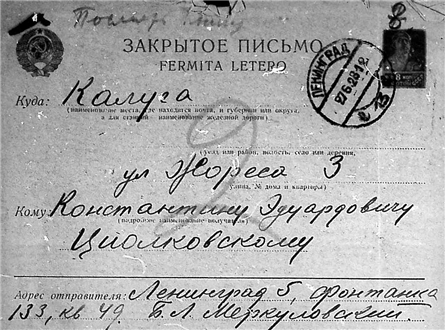 ЗАКРЫТОЕ ПИСЬМО
FERMITA LETERO
ЛЕНИНГРАД
Куда: Калуга
(наименование места, где находится почта, и губернии или округа,
а для станций — наименование железной дороги)
(уезд или район, волость, село или деревня,
ул Жореса 3
улица, № дома и квартиры)
Кому: Константину Эдуардовичу
(подробное наименование получателя)
Циолковскому
Адрес отправителя: Ленинград 5, Фонтанка
133, кв 49. Б. Л. Меркуловский